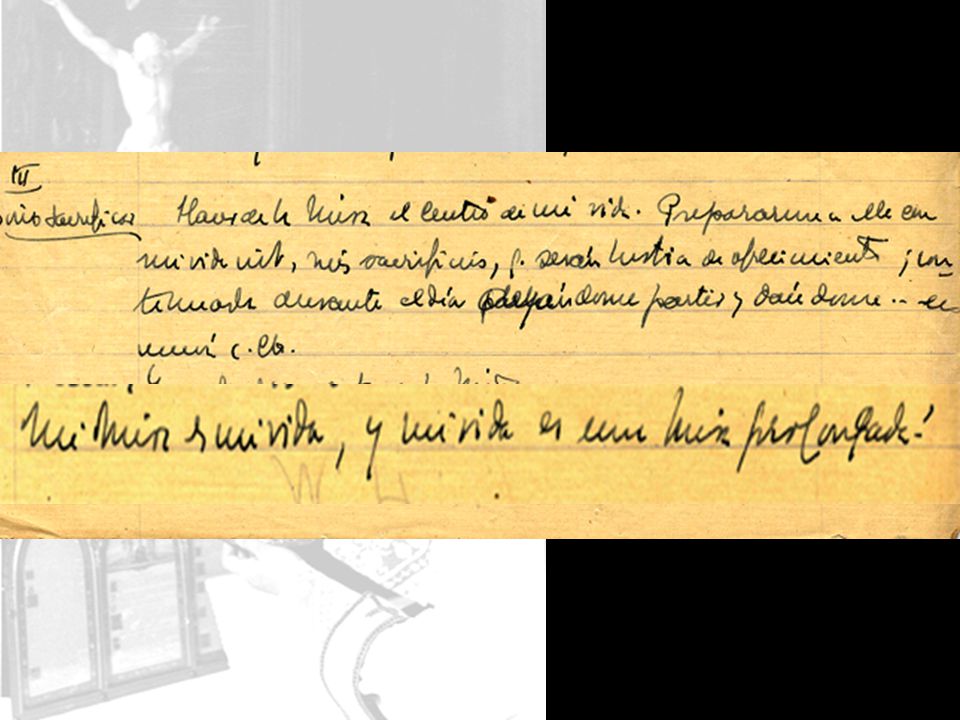 III
Hacer de la Misa el centro de mi vida. Prepararme a ella con
mi vida int., mis sacrificios, q. serán hostia de ofrecimiento; con-
tinuarla durante el día dejándome partir y dándome... en
unión c.
Mi Misa es mi vida, y mi vida es una Misa prolongada!